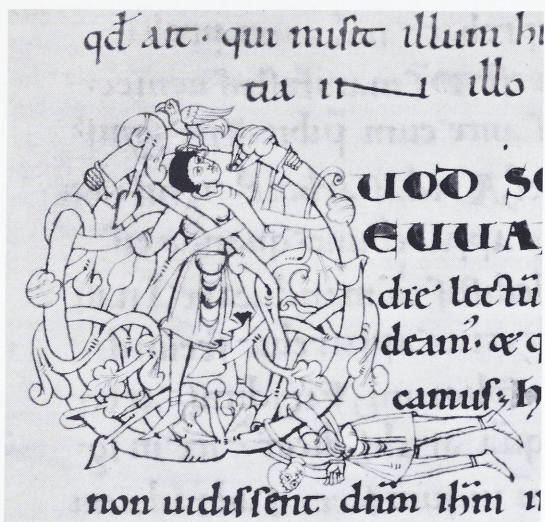 qd̄ ait · qui misit illum h
tia illo
UOD S
EUUA
die lectū
deam᾽· & q
camus; h
non uidissent dn̄m ih̄m